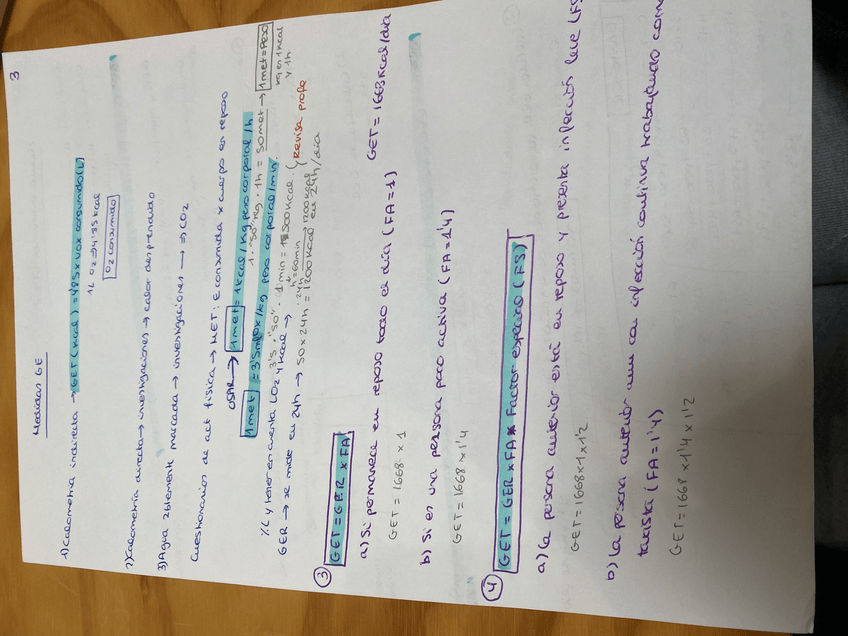 3
Medidas GE
1) Calorimetría indirecta → GET (Kcal) = 4'85 x VO2 consumido (L)
1L O2 → 4'85 Kcal
O2 consumido
2) Calorimetría directa → investigaciones → calor desprendido
3) Agua doblemente marcada → investigaciones → CO2
Cuestionarios de act física → MET: E consumida x cuerpo en reposo
USAR → 1met = 1 kcal / Kg peso corporal / h
1 · "50" kg · 1h = 50met → 1met = PESO
kg en 1 kcal
y 1h
1met = 3'5 mlO2 / kg peso corporal / min
3'5 · "50" · 1min =
y tener en cuenta LO2 y kcal →
Revisa profe
GER → se mide en 24h → 50 x 24h = 1200 kcal en 24h / día
3 GET = GER x FA
a) Si permanece en reposo todo el día (FA = 1) GET = 1668 Kcal/día
GET = 1668 x 1
b) Si es una persona poco activa (FA = 1'4)
GET = 1668 x 1'4
4 GET = GER x FA x Factor especial (FS)
a) La persona anterior está en reposo y presenta infección leve (FS
GET = 1668 x 1 x 1'2
b) La persona anterior aun con infección continua trabajando como
taxista (FA = 1'4)
GET = 1668 x 1'4 x 1'2